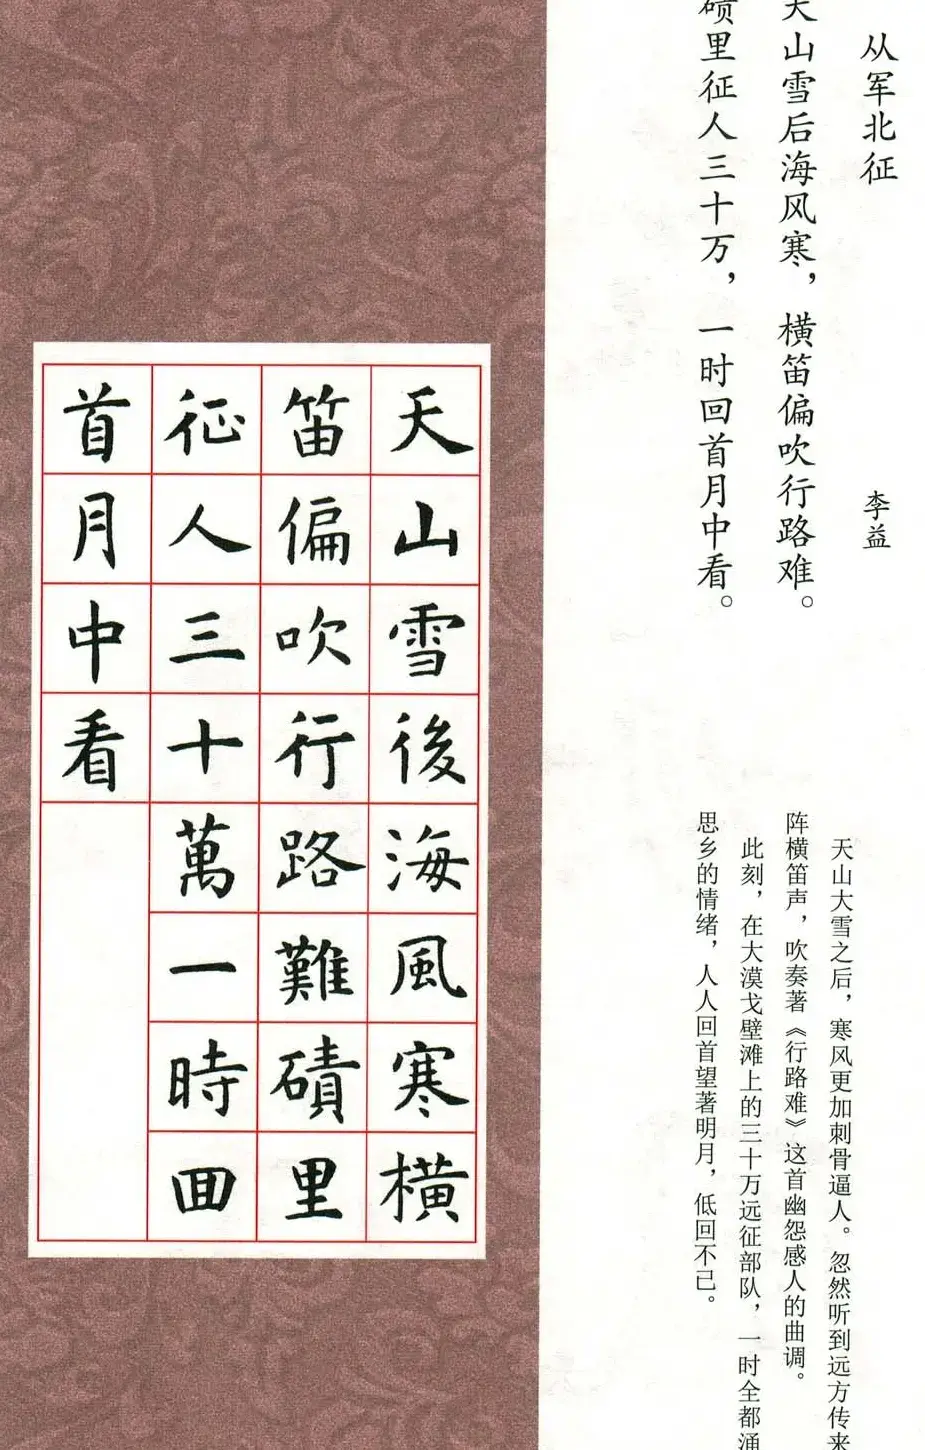 从军北征
李益
天山雪后海风寒，横笛偏吹行路难。
碛里征人三十万，一时回首月中看。
天山大雪之后，寒风更加刺骨逼人。忽然听到远方传来
阵横笛声，吹奏著《行路难》这首幽怨感人的曲调。
此刻，在大漠戈壁滩上的三十万远征部队，一时全都涌
思乡的情绪，人人回首望著明月，低回不已。
天山雪後海風寒橫
笛偏吹行路難磧里
征人三十萬一時囬
首月中看